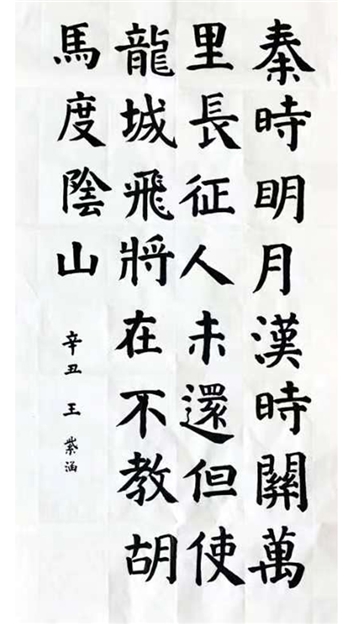 秦時明月漢時關萬
里長征人未還但使
龍城飛將在不教胡
馬度陰山
辛丑 王紫涵